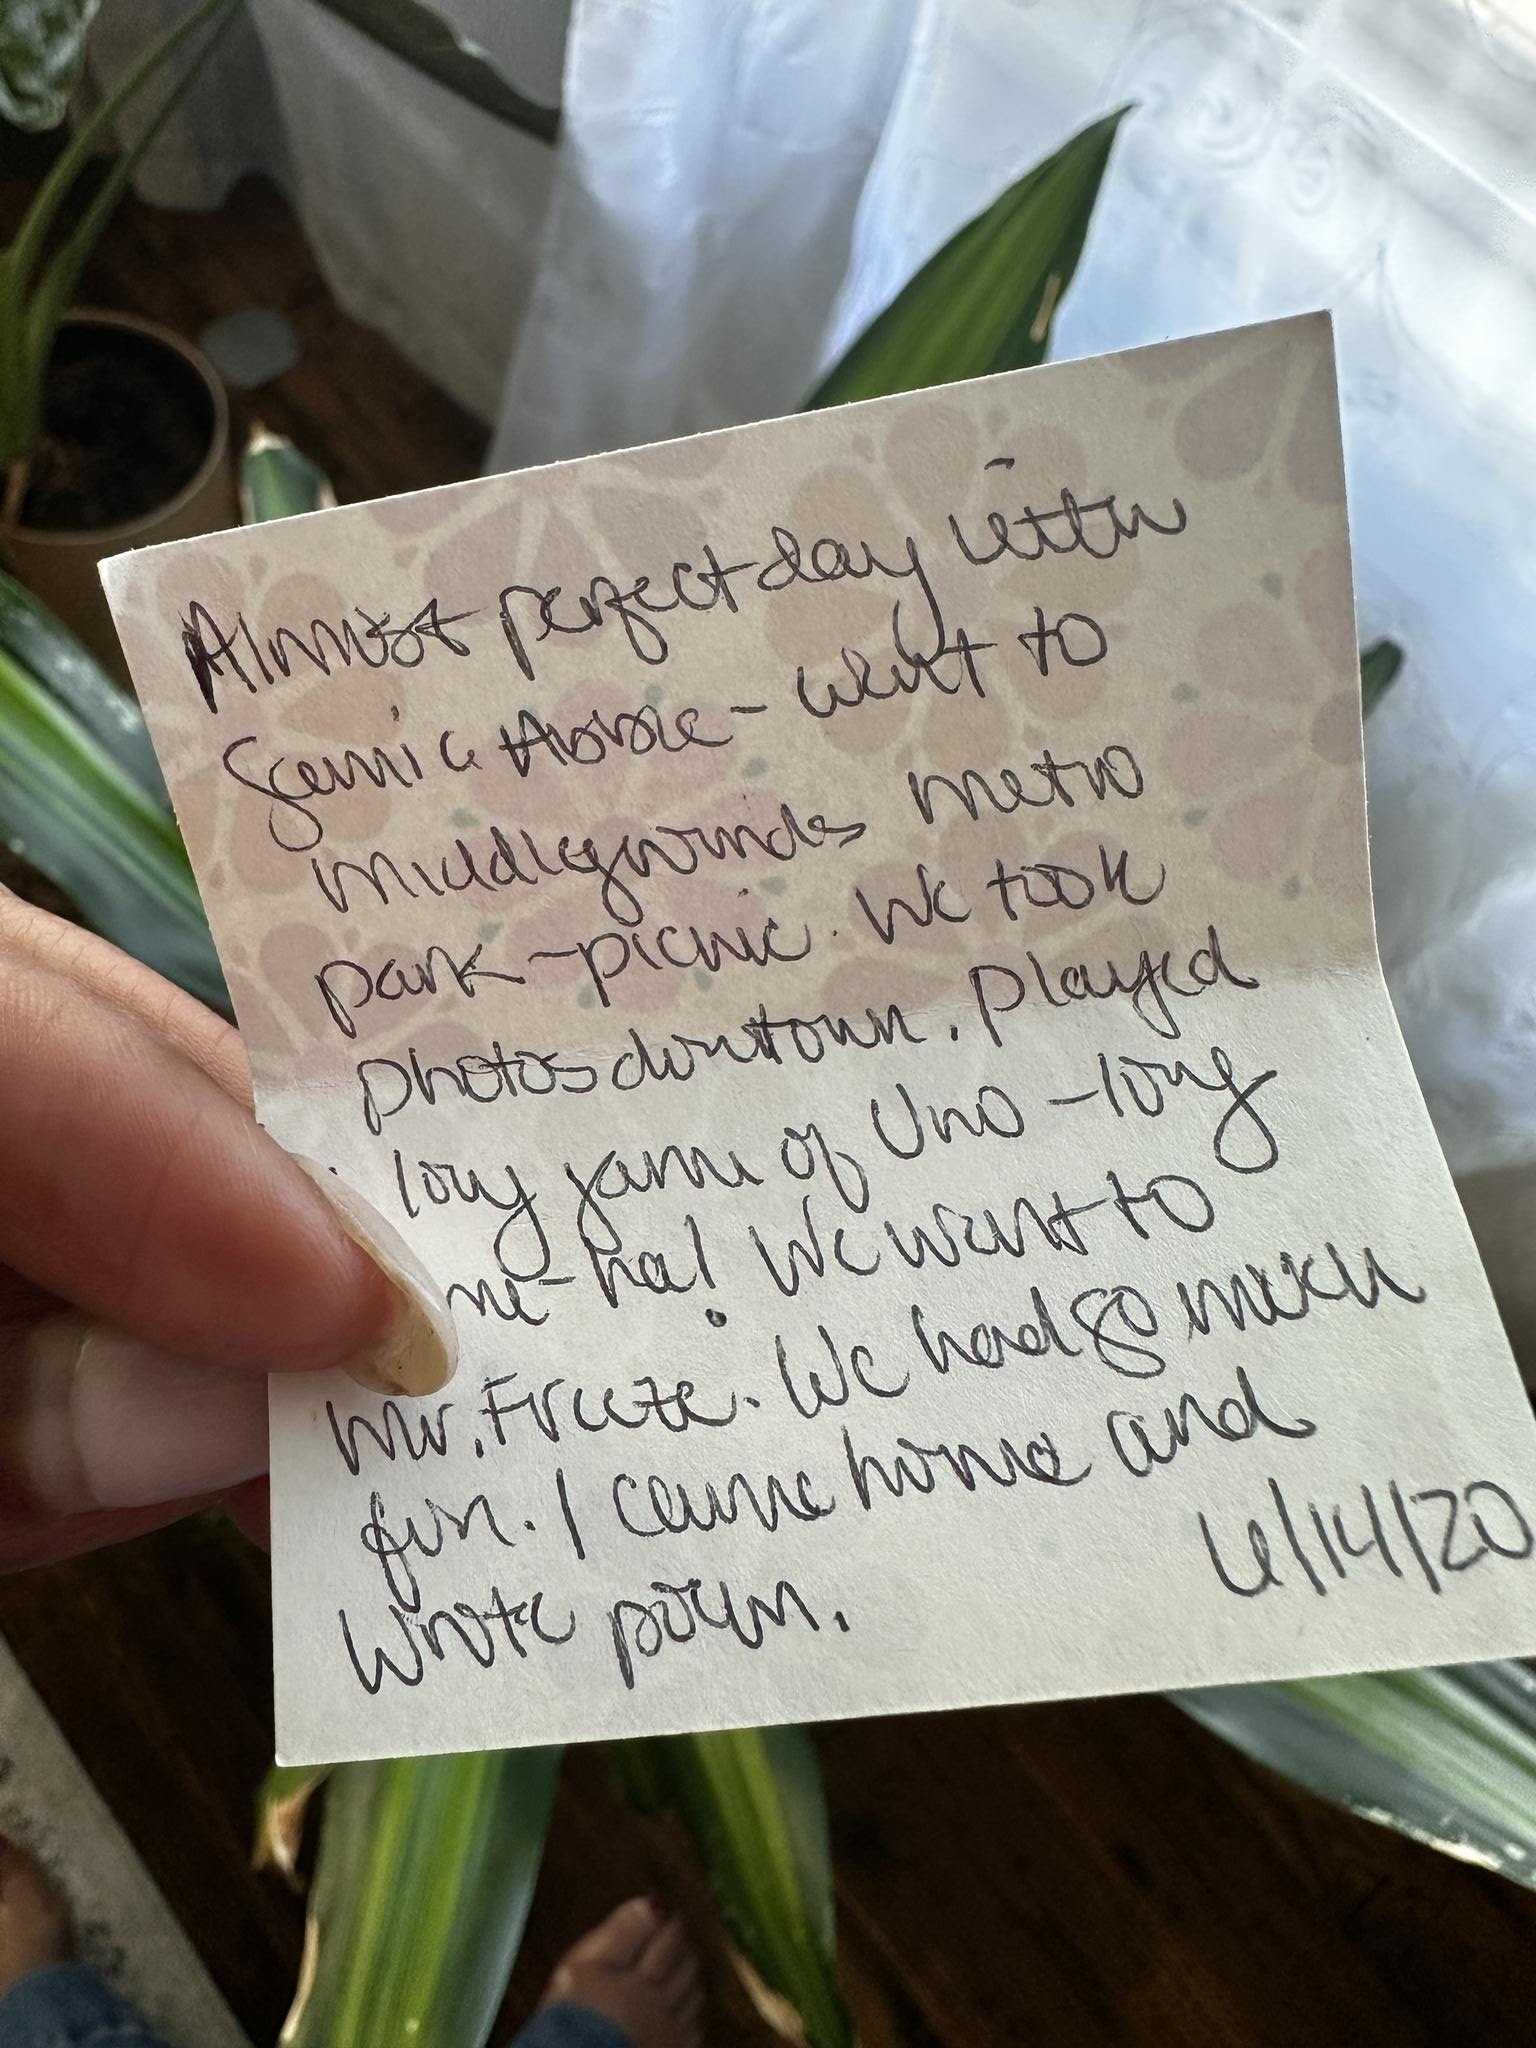 Almost perfect day with
& Abbie - went to
Middlegrounds metro
park - picnic. We took
photos downtown. Played
long game of Uno - long
me - ha! We went to
Mr. Freeze. We had so much
fun. I came home and
wrote poem.
6/14/20